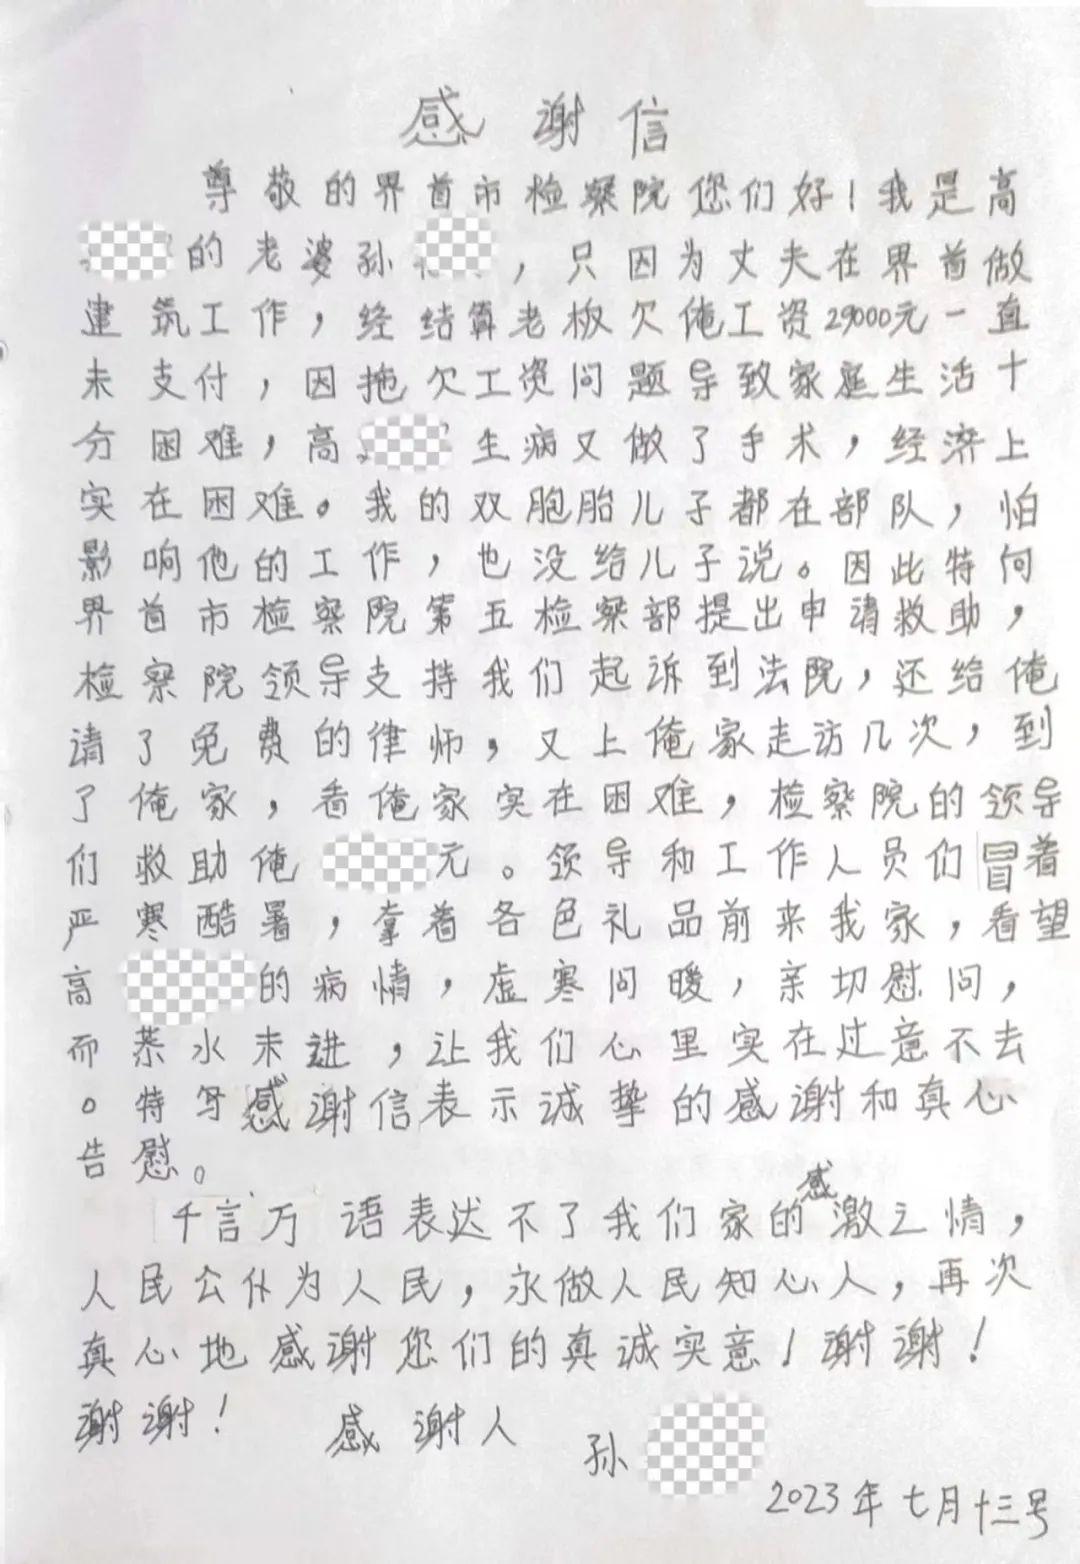 感谢信
尊敬的界首市检察院您们好！我是高
的老婆孙，只因为丈夫在界首做
建筑工作，经结算老板欠俺工资29000元一直
未支付，因拖欠工资问题导致家庭生活十
分困难，高生病又做了手术，经济上
实在困难。我的双胞胎儿子都在部队，怕
影响他的工作，也没给儿子说。因此特向
界首市检察院第五检察部提出申请救助，
检察院领导支持我们起诉到法院，还给俺
请了免费的律师，又上俺家走访几次，到
了俺家，看俺家实在困难，检察院的领导
们救助俺元。领导和工作人员们冒着
严寒酷暑，拿着各色礼品前来我家，看望
高的病情，虚寒问暖，亲切慰问，
而茶水未进，让我们心里实在过意不去
。特写感谢信表示诚挚的感谢和真心
告慰。
千言万语表达不了我们家的感激之情，
人民公仆为人民，永做人民知心人，再次
真心地感谢您们的真诚实意！谢谢！
谢谢！ 感谢人 孙
2023年七月十三号